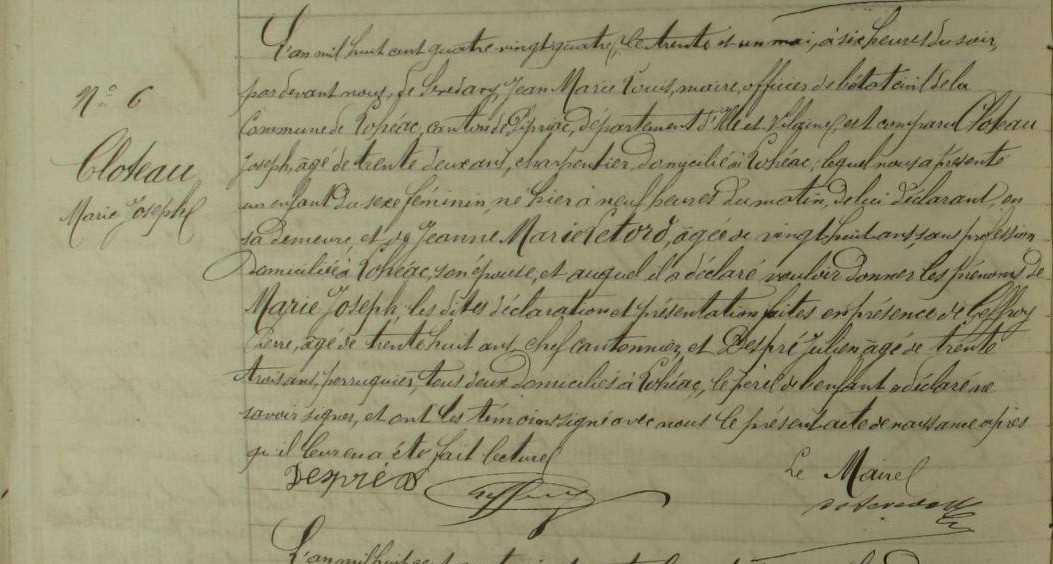 N° 6
Cloteau
Marie Joseph
L'an mil huit cent quatre-vingt-quatre, le trente et un mai, à six heures du soir,
par devant nous, de Servdary, Jean Marie Louis, maire, officier de l'état civil de la
Commune de Lohéac, canton de Pipriac, département d'Ille et Vilaine, est comparu Cloteau
Joseph, âgé de trente deux ans, charpentier, domicilié à Lohéac, lequel nous a présenté
un enfant du sexe féminin, né hier à neuf heures du matin, de lui déclarant, en
sa demeure, et de Jeanne Marie Letord, âgée de vingt huit ans sans profession
Domiciliée à Lohéac, son épouse, et auquel il a déclaré vouloir donner les prénoms de
Marie Joseph, les dites déclaration et présentation faites en présence de Geffroy
Pierre, âgé de trente huit ans, chef cantonnier, et Despré Julien âgé de trente
trois ans, perruquier, tous deux domiciliés à Lohéac, le père de l'enfant a déclaré ne
savoir signer, et ont les témoins signé avec nous le présent acte de naissance après
qu'il leur en a été fait lecture
Despré Geffroy Le Maire
L'an mil huit cent